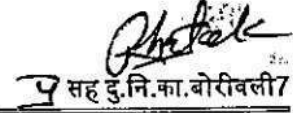 सह दु.नि.का.बोरीवली7